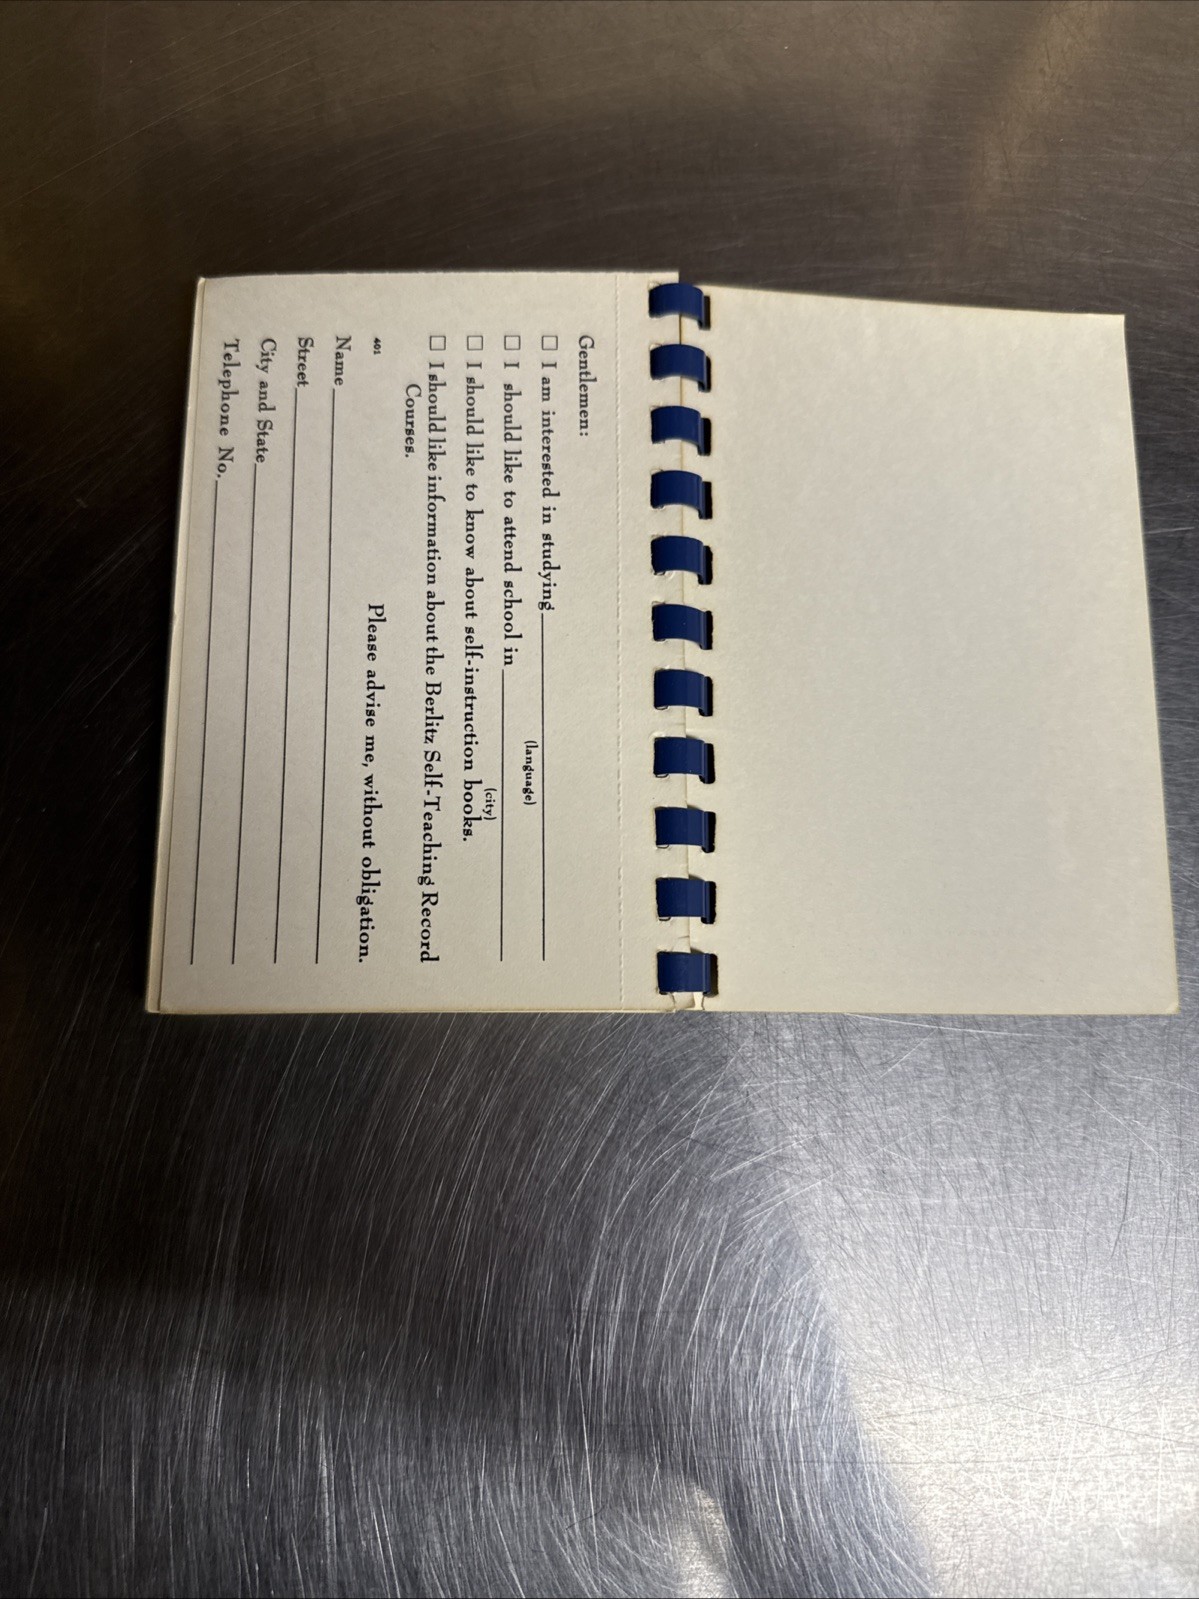 Gentlemen:
☐ I am interested in studying
(language)
☐ I should like to attend school in
(city)
☐ I should like to know about self-instruction books.
☐ I should like information about the Berlitz Self-Teaching Record
Courses.
401 Please advise me, without obligation.
Name
Street
City and State
Telephone No.